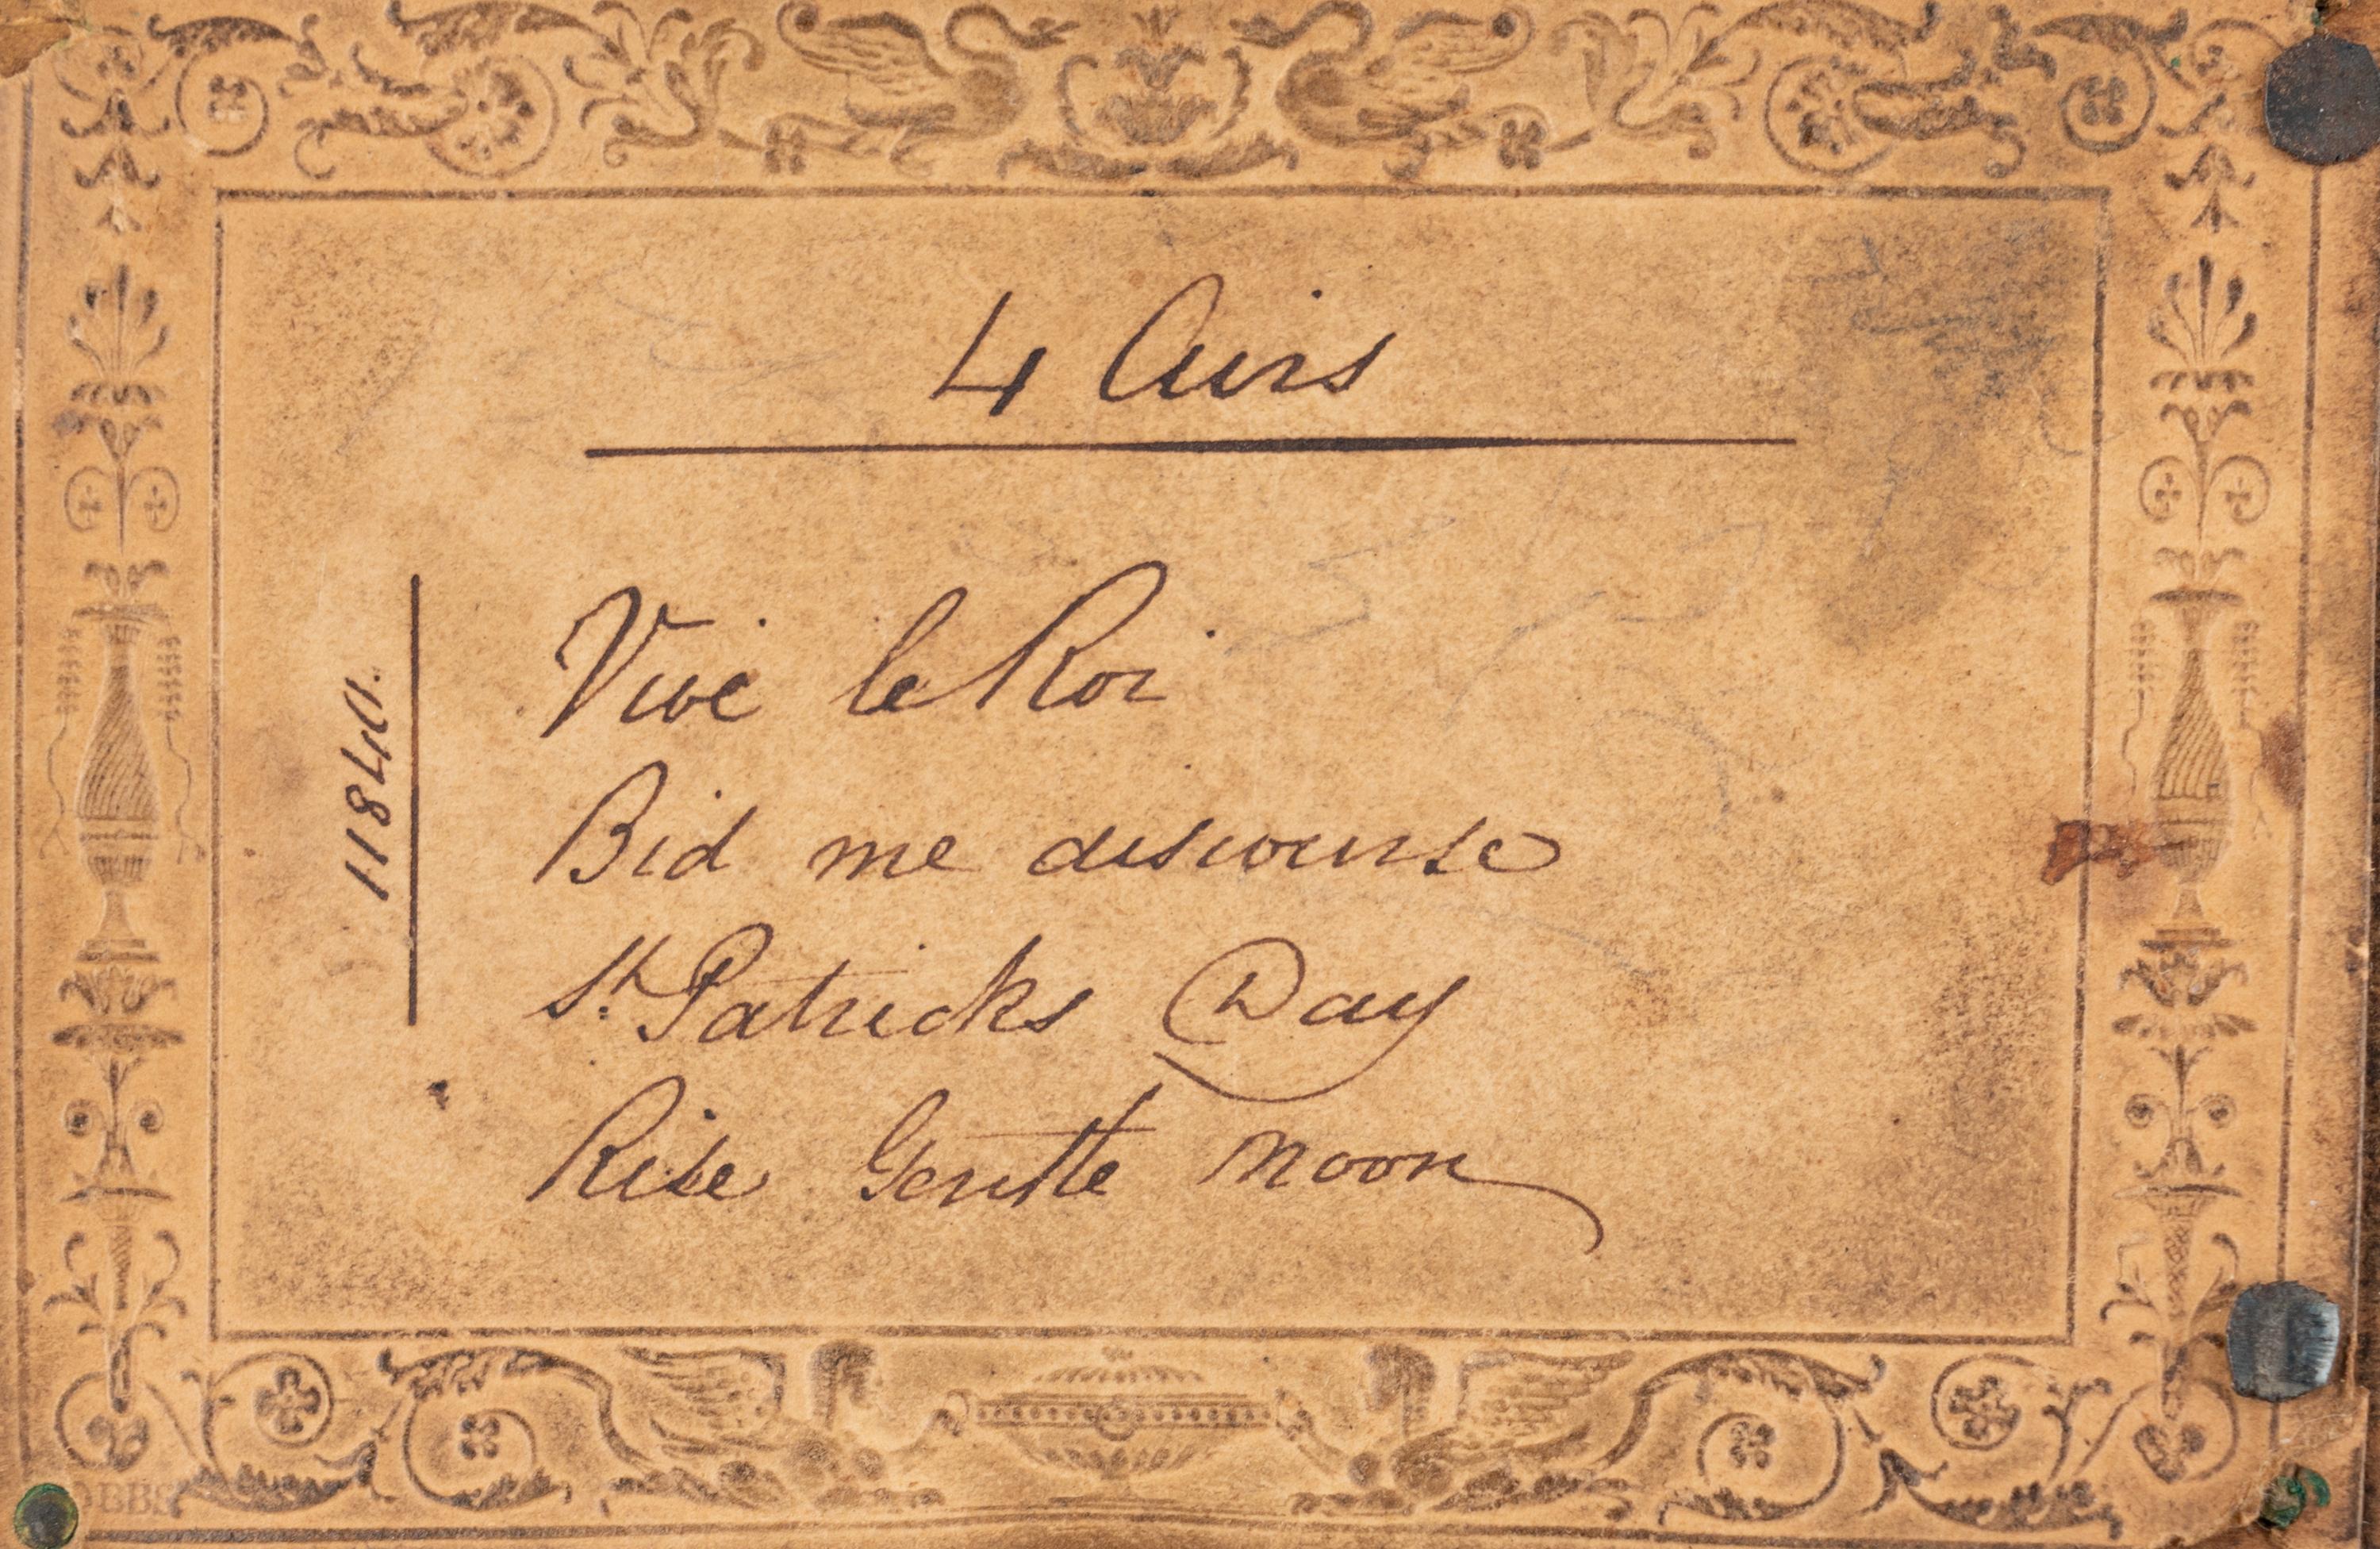 4 Airs
11840.
Vive le Roi
Bid me discourse
St. Patricks Day
Rise Gentle Moon